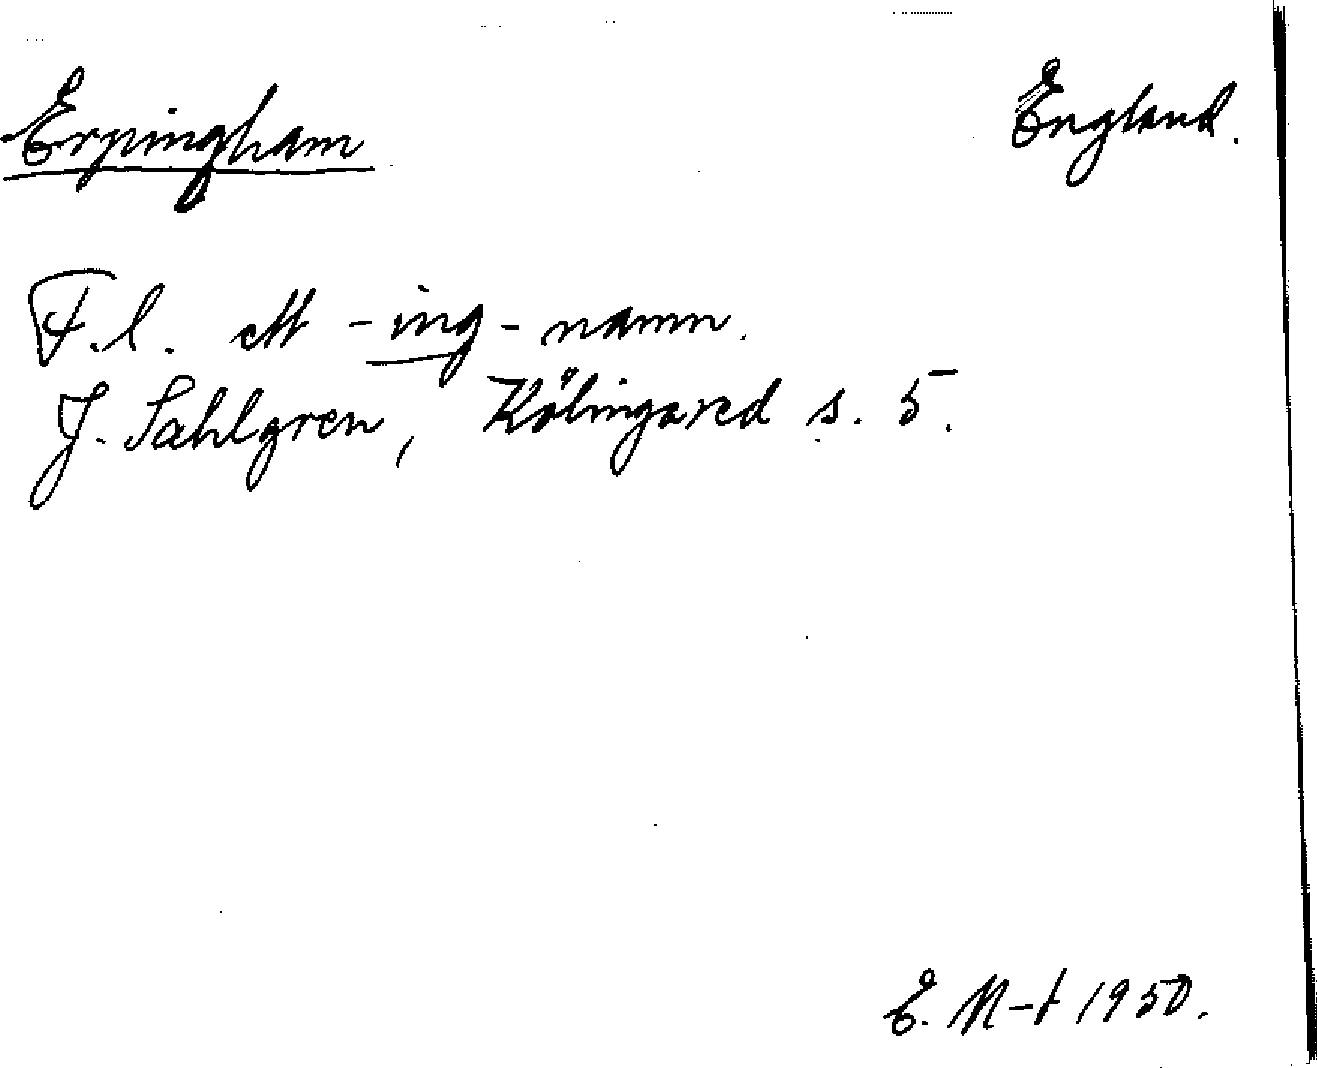 Erpingham England.
F.l. ett -ing-namn.
J. Sahlgren, Kölingared s. 5.
E. N-t 1950.